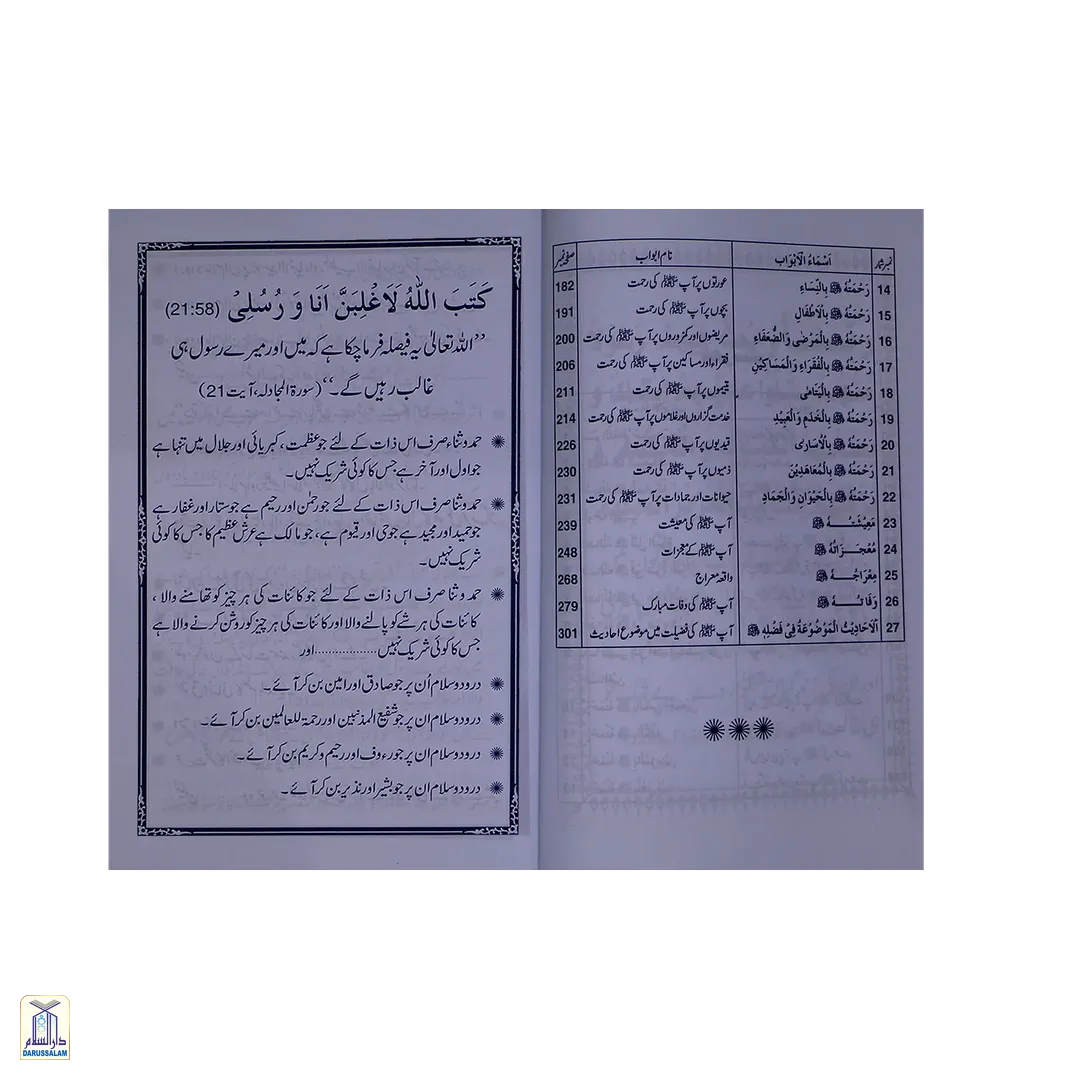 نمبر شمار اَسْمَاءُ الْاَبْوَاب نام ابواب صفحہ نمبر
14 رَحْمَتُهُ ﷺ بِالنِّسَاءِ عورتوں پر آپ ﷺ کی رحمت 182
15 رَحْمَتُهُ ﷺ بِالْاَطْفَالِ بچوں پر آپ ﷺ کی رحمت 191
16 رَحْمَتُهُ ﷺ بِالْمَرْضٰی وَالضُّعَفَاءِ مریضوں اور کمزوروں پر آپ ﷺ کی رحمت 200
17 رَحْمَتُهُ ﷺ بِالْفُقَرَاءِ وَالْمَسَاكِيْنِ فقراء اور مساکین پر آپ ﷺ کی رحمت 206
18 رَحْمَتُهُ ﷺ بِالْيَتَامٰی یتیموں پر آپ ﷺ کی رحمت 211
19 رَحْمَتُهُ ﷺ بِالْخَدَمِ وَالْعَبِيْدِ خدمت گزاروں اور غلاموں پر آپ ﷺ کی رحمت 214
20 رَحْمَتُهُ ﷺ بِالْاُسَارٰی قیدیوں پر آپ ﷺ کی رحمت 226
21 رَحْمَتُهُ ﷺ بِالْمُعَاهَدِيْنَ ذمیوں پر آپ ﷺ کی رحمت 230
22 رَحْمَتُهُ ﷺ بِالْحَيْوَانِ وَالْجَمَادِ حیوانات اور جمادات پر آپ ﷺ کی رحمت 231
23 مَعِيْشَتُـــهُ ﷺ آپ ﷺ کی معیشت 239
24 مُعْجِـــزَاتُهُ ﷺ آپ ﷺ کے معجزات 248
25 مِعْرَاجُـــهُ ﷺ واقعہ معراج 268
26 وَفَاتُـــهُ ﷺ آپ ﷺ کی وفات مبارک 279
27 اَلْاَحَادِيْثُ الْمَوْضُوْعَةُ فِیْ فَضْلِهِ ﷺ آپ ﷺ کی فضیلت میں موضوع احادیث 301
كَتَبَ اللّٰهُ لَاَغْلِبَنَّ اَنَا وَ رُسُلِیْ (21:58)
’’اللہ تعالیٰ یہ فیصلہ فرما چکا ہے کہ میں اور میرے رسول ہی
غالب رہیں گے۔‘‘ (سورۃ المجادلہ، آیت 21)
حمد و ثناء صرف اس ذات کے لئے جو عظمت، کبریائی اور جلال میں تنہا ہے
جو اول اور آخر ہے، جس کا کوئی شریک نہیں۔
حمد و ثنا صرف اس ذات کے لئے جو رحمٰن اور رحیم ہے جو ستار اور غفار ہے
جو حمید اور مجید ہے جو حی اور قیوم ہے، جو مالک ہے عرش عظیم کا جس کا کوئی
شریک نہیں۔
حمد و ثنا صرف اس ذات کے لئے جو کائنات کی ہر چیز کو تھامنے والا،
کائنات کی ہر شے کو پالنے والا اور کائنات کی ہر چیز کو روشن کرنے والا ہے
جس کا کوئی شریک نہیں.................اور
درود و سلام اُن پر جو صادق اور امین بن کر آئے۔
درود و سلام ان پر جو شفیع المذنبین اور رحمۃ للعالمین بن کر آئے۔
درود و سلام ان پر جو رءوف اور رحیم و کریم بن کر آئے۔
درود و سلام ان پر جو بشیر اور نذیر بن کر آئے۔
دارالسلام
DARUSSALAM